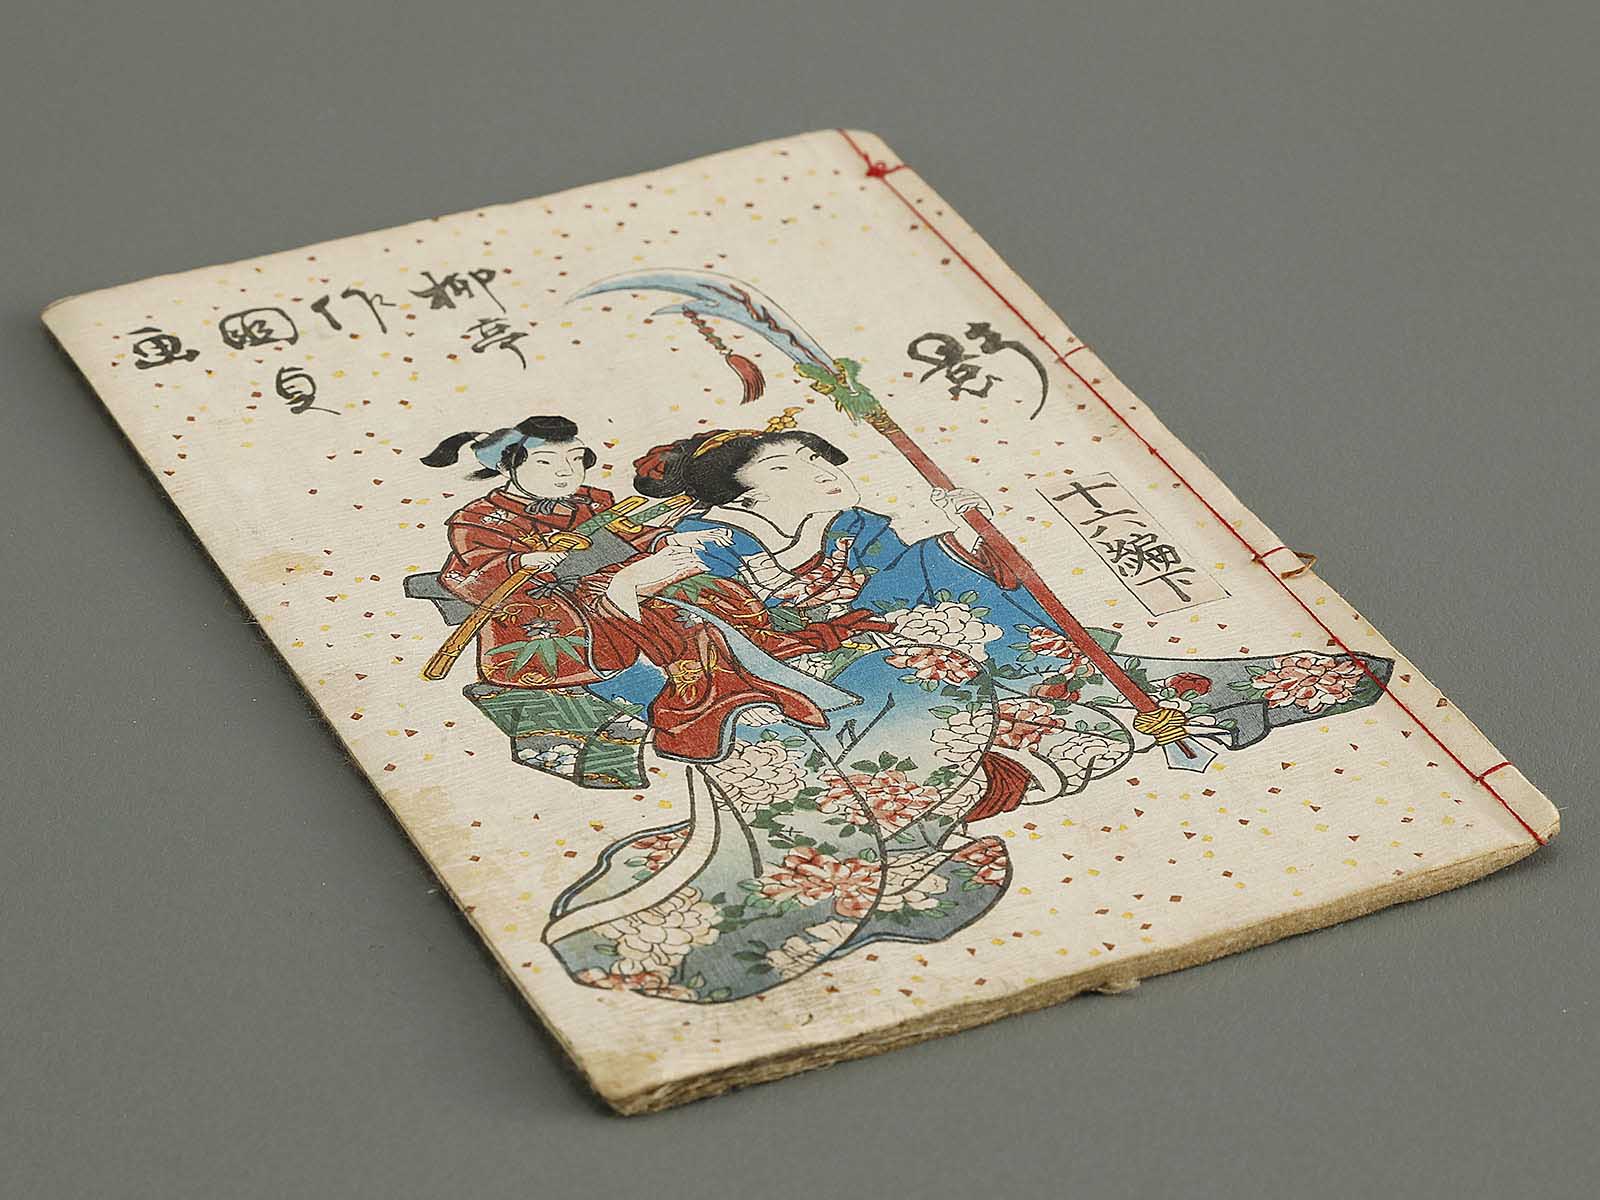 影
十六編下
柳亭
作
國貞
画